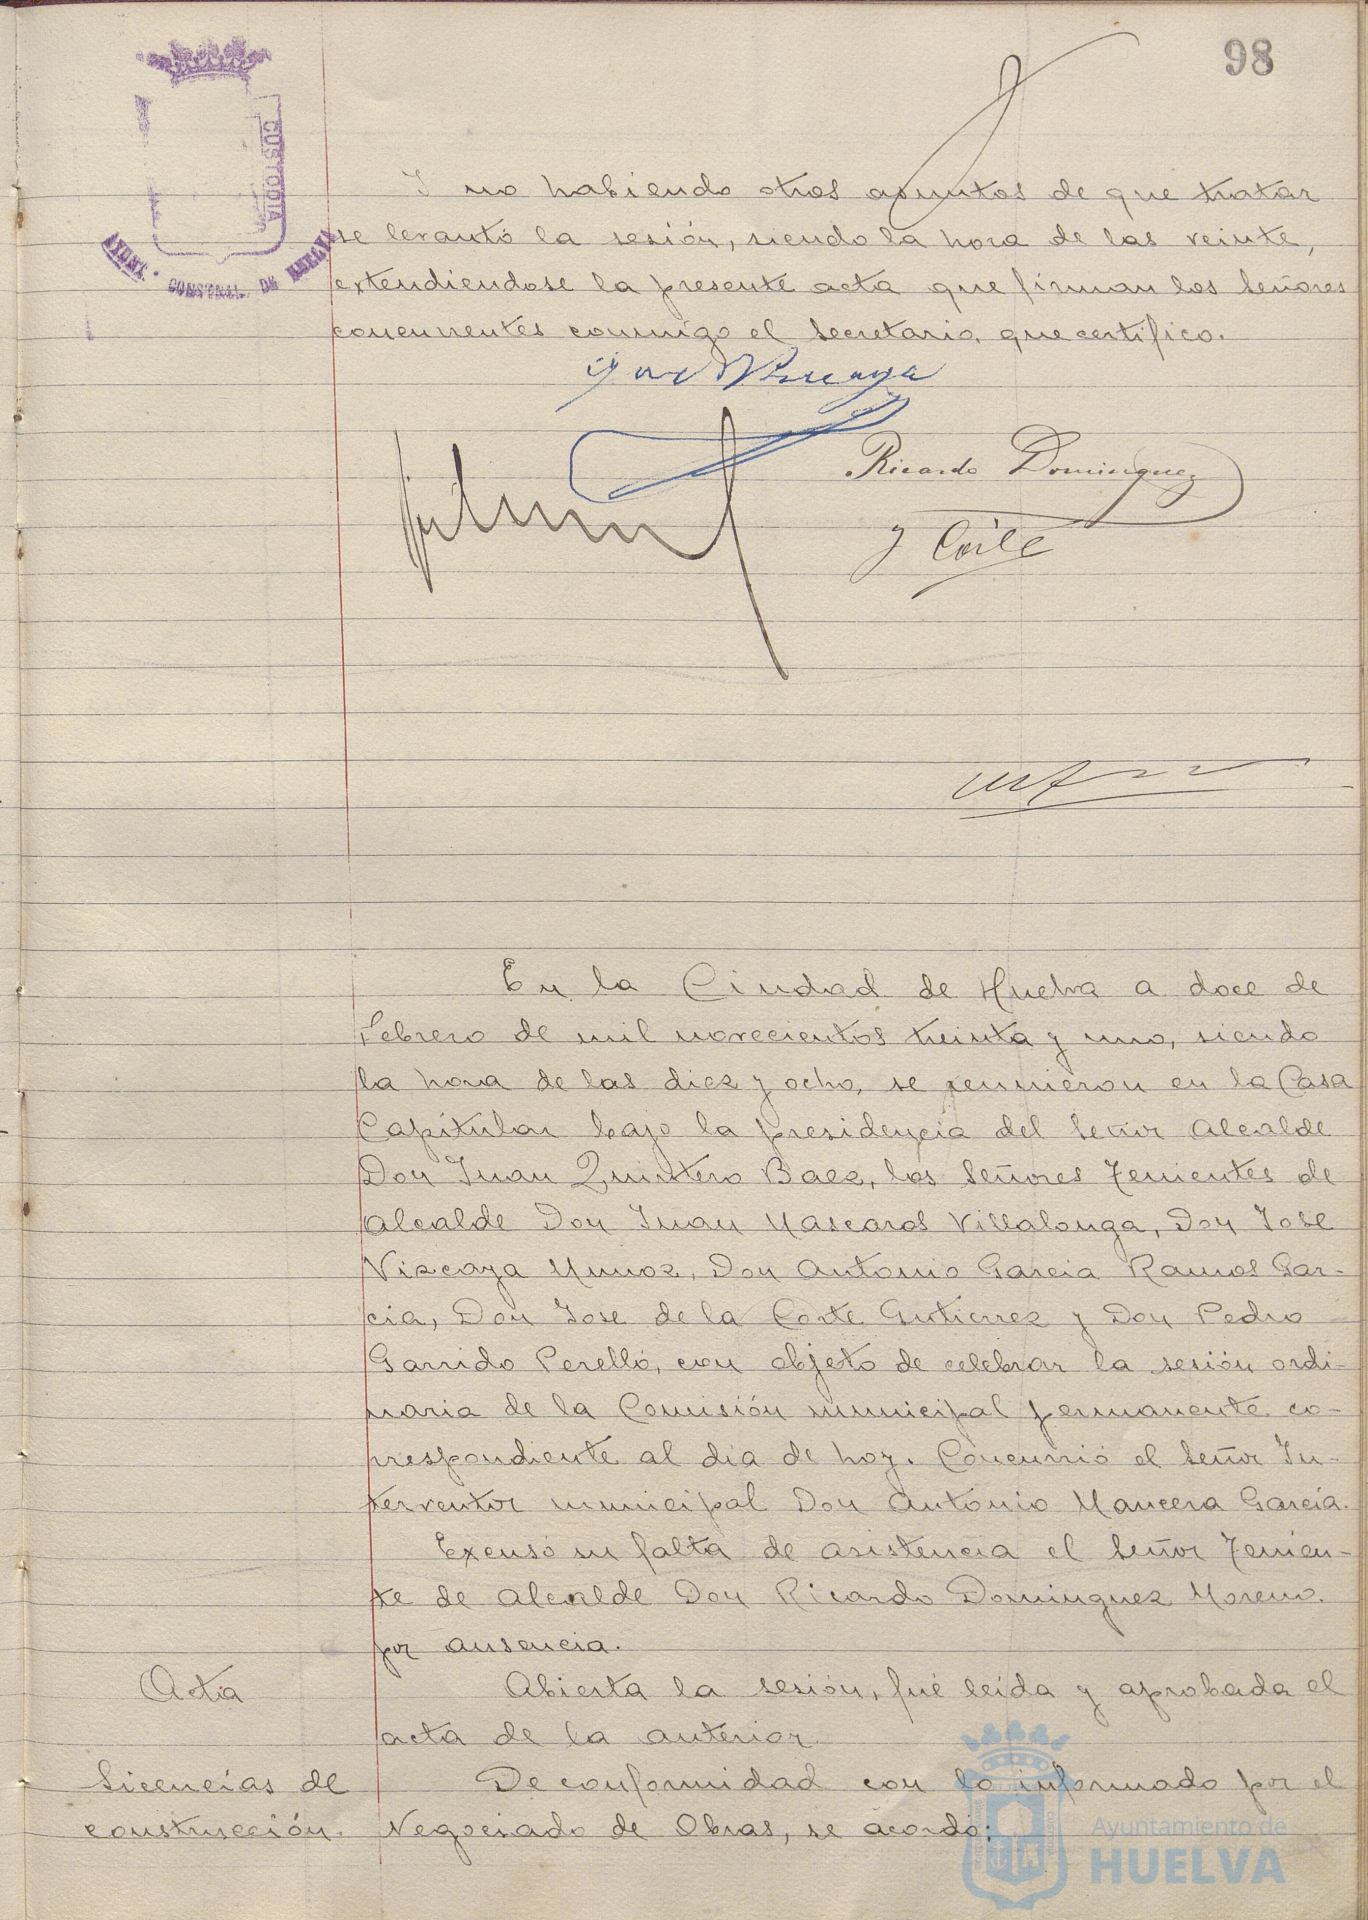 98
CUSTODIA
AYUNT. CONSTNAL. DE HUELVA
Y no habiendo otros asuntos de que tratar
se levantó la sesión, siendo la hora de las veinte,
extendiendose la presente acta que firman los Señores
concurrentes conmigo el Secretario, que certifico.
Ricardo Dominguez
En la Ciudad de Huelva a doce de
Febrero de mil novecientos treinta y uno, siendo
la hora de las diez y ocho, se reunieron en la Casa
Capitular bajo la presidencia del Señor Alcalde
Don Juan Quintero Baez, los Señores Tenientes de
Alcalde Don Juan Mascaros Villalonga, Don José
Vizcaya Muñoz, Don Antonio Garcia Ramos Gar-
cia, Don Jose de la Corte Gutierrez y Don Pedro
Garrido Perelló, con objeto de celebrar la sesión ordi-
naria de la Comisión municipal permanente co-
rrespondiente al dia de hoy. Concurrió el Señor In-
terventor municipal Don Antonio Mancera García.
Excusó su falta de asistencia el Señor Tenien-
te de Alcalde Don Ricardo Dominguez Moreno.
por ausencia.
Acta
Abierta la sesión, fué leida y aprobada el
acta de la anterior
Licencias de
construcción.
De conformidad con lo informado por el
Negociado de Obras, se acordó:
Ayuntamiento de
HUELVA